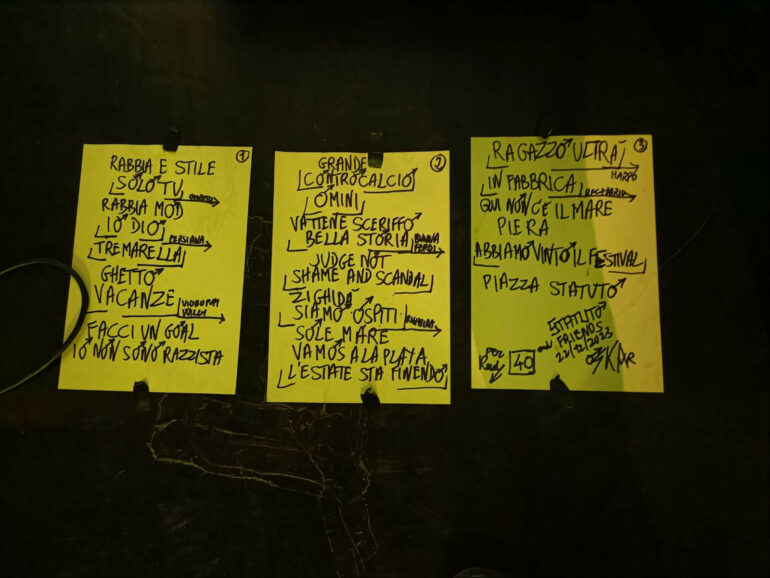 1
RABBIA E STILE
SOLO TU
RABBIA MOD
IO DIO
PERSIANA
TREMARELLA
GHETTO
VACANZE
FACCI UN GOAL
IO NON SONO RAZZISTA
2
GRANDE
CONTROCALCIO
OMINI
VATTENE SCERIFFO
BELLA STORIA
JUDGE NOT
SHAME AND SCANDAL
ZIGHIDÀ
SIAMO OSPITI
SOLE MARE
VAMOS A LA PLAYA
L'ESTATE STA FINENDO
3
RAGAZZO ULTRÀ
HARPO
IN FABBRICA
QUI NON C'E IL MARE
PIERA
ABBIAMO VINTO IL FESTIVAL
PIAZZA STATUTO
STATUTO
FRIENDS
22/12/2023
40
OSKAR